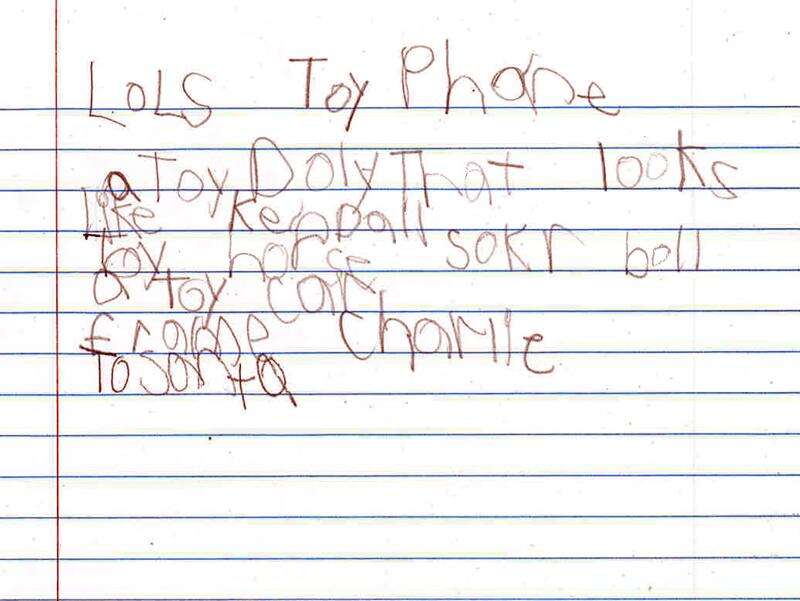 LOLS Toy Phone
a Toy Doly That looks
Like Kendall
Toy horse sokr boll
a Toy car
frome Charlie
To santa